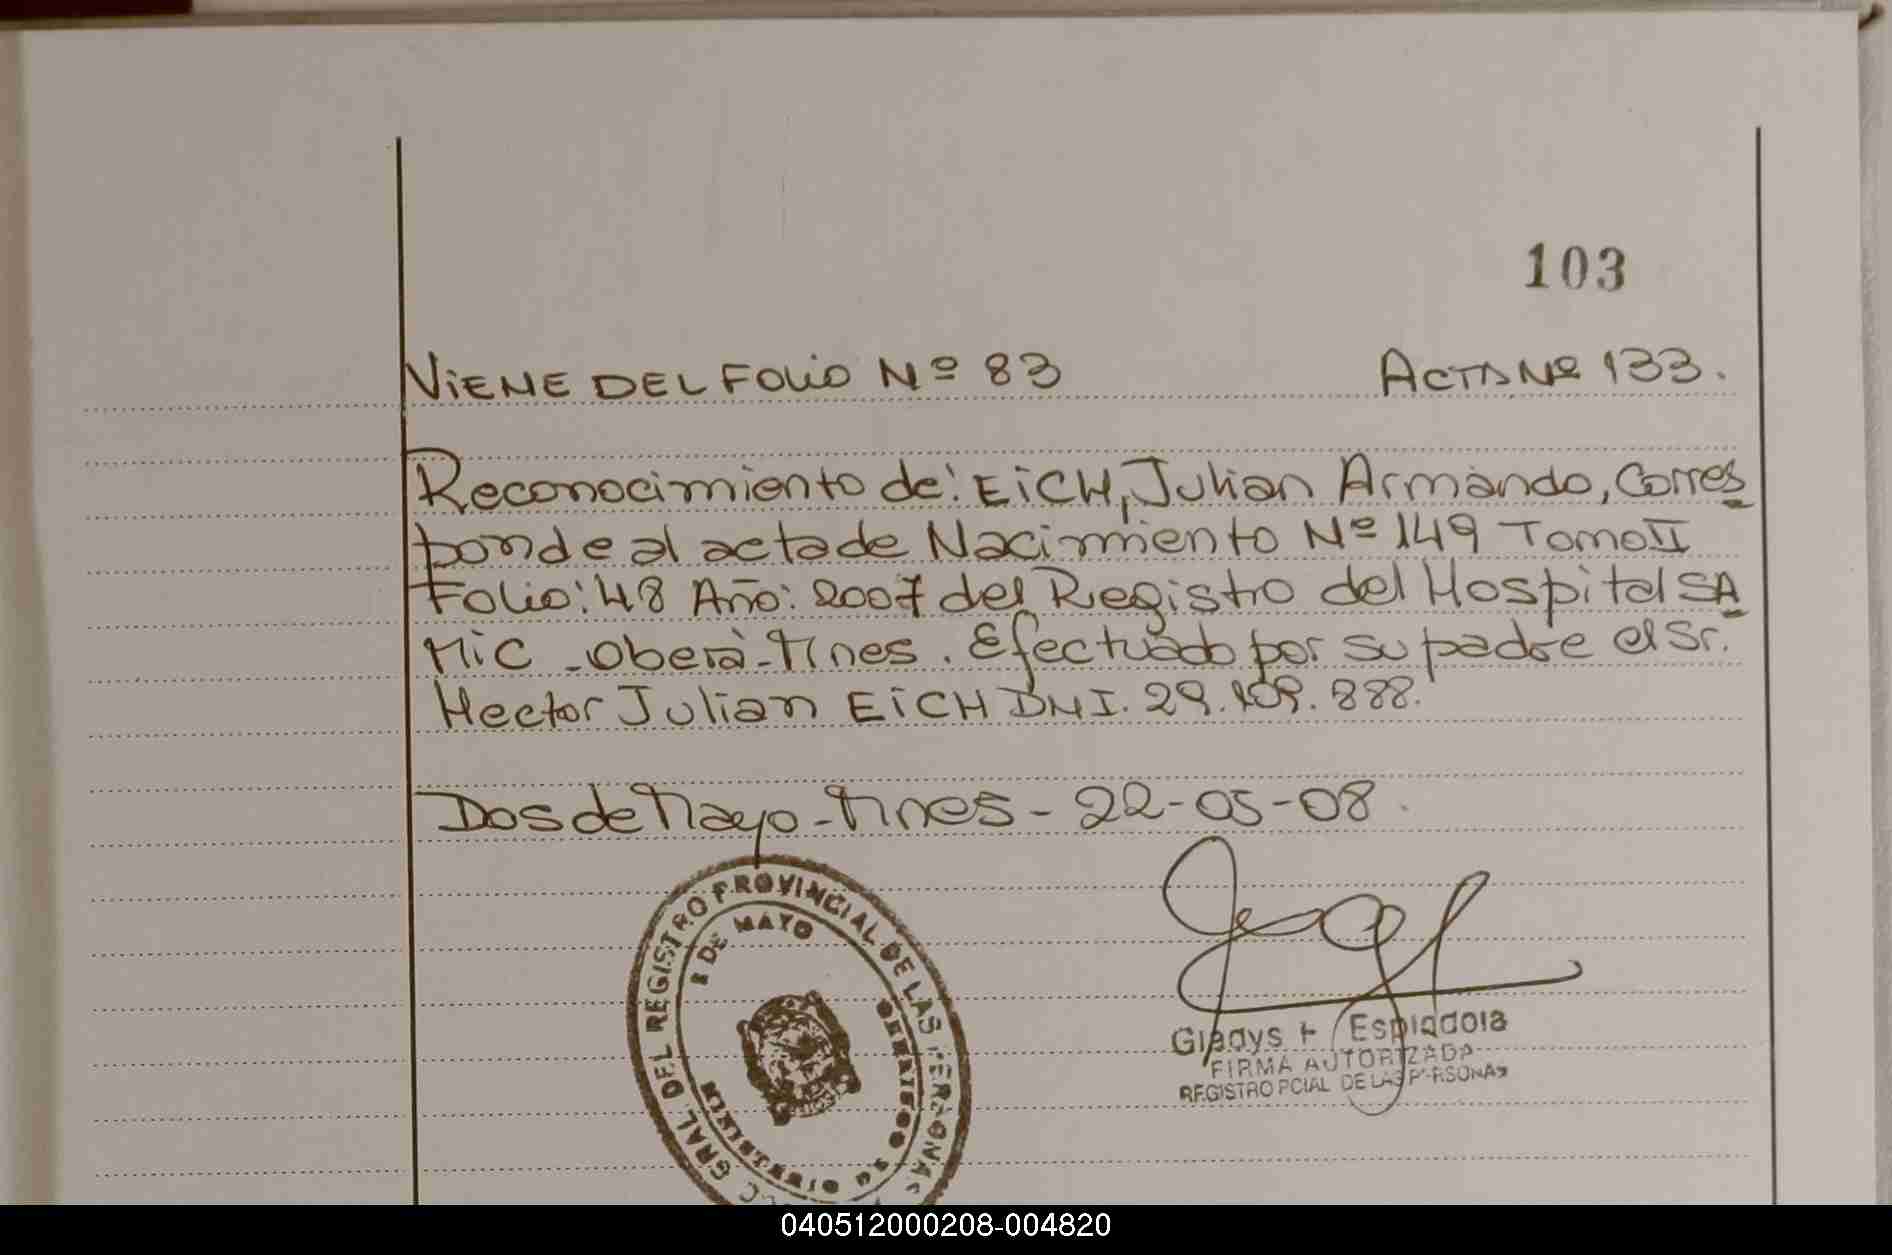 103
VIENE DEL FOLIO Nº 83 ACTA Nº 133.
Reconocimiento de: EICH, Julian Armando, Corres
ponde al acta de Nacimiento Nº 149 Tomo II
Folio: 48 Año: 2007 del Registro del Hospital SA
MIC - Oberà - Mnes. Efectuado por su padre el Sr.
Hector Julian EICH DNI. 29.109.888.
Dos de Mayo - Mnes - 22-05-08.
GRAL DEL REGISTRO PROVINCIAL DE LAS PERSONAS
2 DE MAYO
MISIONES
Gladys Espindola
FIRMA AUTORIZADA
REGISTRO PCIAL DE LAS PERSONAS
040512000208-004820